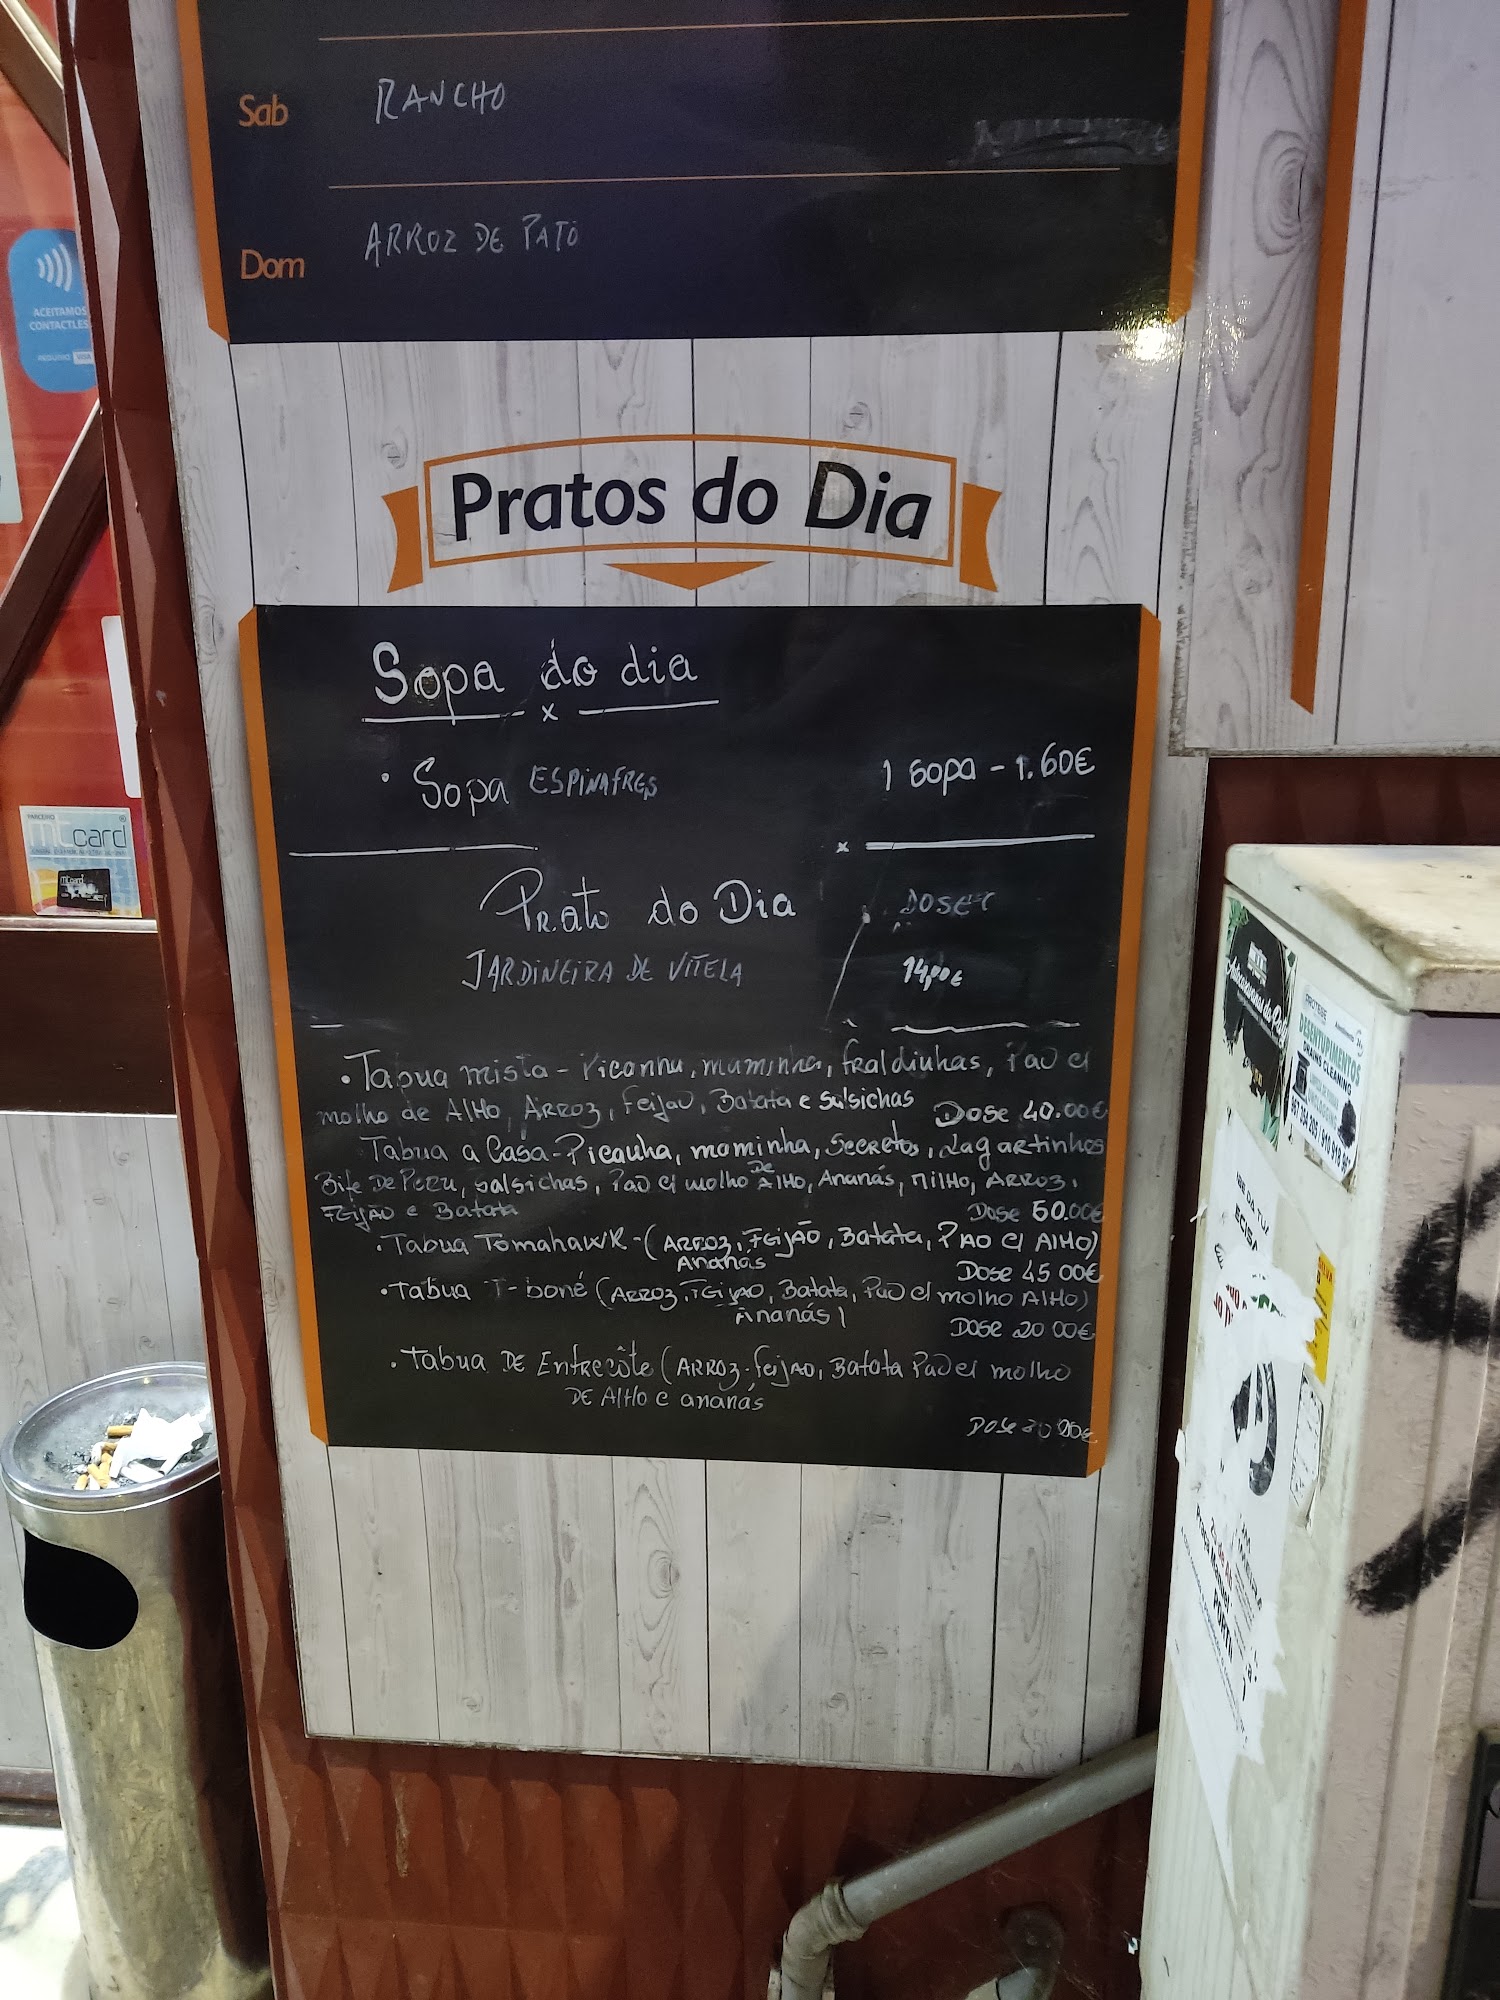 Sab RANCHO
Dom ARROZ DE PATO
ACEITAMOS
CONTACTLES
VISA
Pratos do Dia
Sopa do dia
x
· Sopa ESPINAFRES 1 Sopa - 1.60€
x
Prato do Dia DOSE
JARDINEIRA DE VITELA 14,00€
· Tabua mista - Picanha, maminha, fraldinhas, Pao c/
molho de Alho, Arroz, Feijao, Batata e salsichas Dose 40.00€
Tabua a Casa - Picanha, maminha, Secretos, Lagartinhos
Bife De Peru, salsichas, Pao c/ molho DE Alho, Ananás, Milho, Arroz,
Feijão e Batata Dose 50.00€
· Tabua Tomahawk - (Arroz, Feijão, Batata, Pao c/ Alho)
Ananás Dose 45 00€
· Tabua T-boné (Arroz, Feijao, Batata, Pao c/ molho Alho)
Ananás) Dose 20 00€
· Tabua DE Entrecôte (Arroz, feijao, Batata Pao c/ molho
DE Alho e ananás
Dose 00€
PARCEIRO
mTcard
mTcard
PROTEGE
DESENTUPIMENTOS
CLEANING
Praça
PORTIM